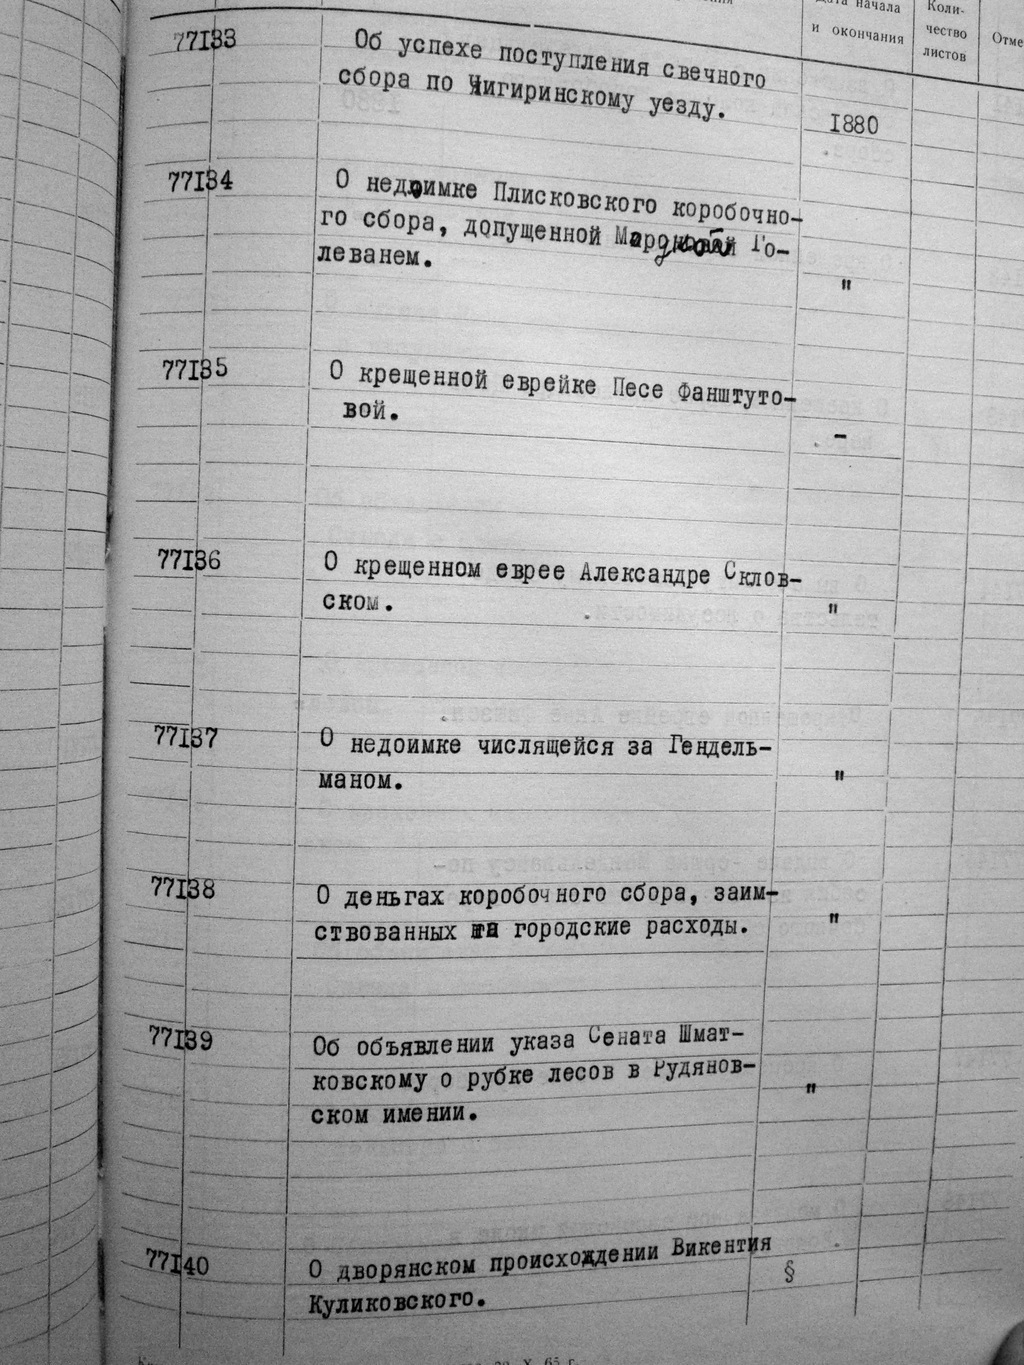 Дата начала
и окончания
Коли-
чество
листов
Отме
77133 Об успехе поступления свечного
сбора по Чигиринскому уезду.
1880
77134 О недоимке Плисковского коробочно-
го сбора, допущенной Го-
леванем.
"
77135 О крещенной еврейке Песе Фанштуто-
вой.
-
77136 О крещенном еврее Александре Склов-
ском. "
77137 О недоимке числящейся за Гендель-
маном. "
77138 О деньгах коробочного сбора, заим-
ствованных на городские расходы. "
77139 Об объявлении указа Сената Шмат-
ковскому о рубке лесов в Рудянов-
ском имении. "
77140 О дворянском происхождении Викентия
Куликовского. §